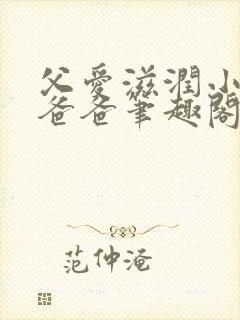 父愛滋潤小
爸爸筆趣閣
范仲淹